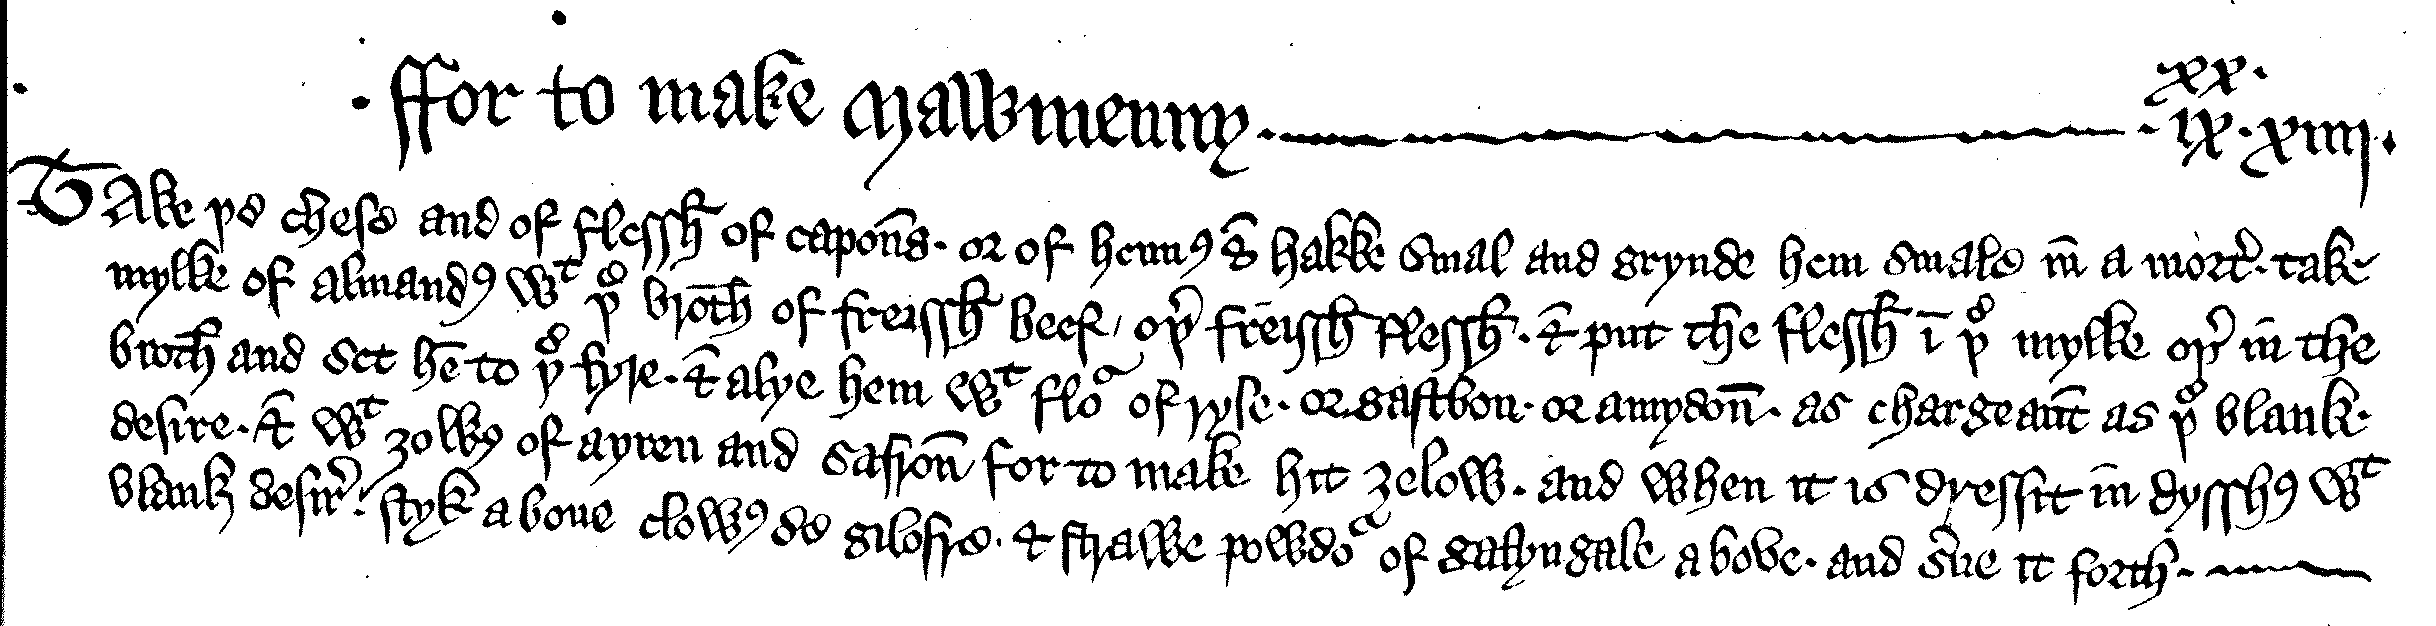 xx.
· ffor to make Mawmenny. ix. xiiij.
Take þe chese and of flessħ of capon̄s. or of hennꝰ & hakke smal and grynde hem smale in̄ a mort͛. take
mylke of almandꝰ wͭ þͤ broth̄ of freissħ beef / oþ͛ freissħ flessħ. & put the flessħ ī þͤ mylke oþ͛ in̄ the
brotħ and set hē to þͤ fyre. & alye hem wͭ floᷣ of ryse. or gastbon. or amydon̄. as chargean̄t as þͤ blank.
desire. & wͭ ȝolkꝰ of ayren and safron̄ for to make hit ȝelow. and when it is dressit in̄ dysshꝰ wͭ
blank desir͛. styk aboue clowꝰ de gilofre. & strawe powdoᷣ of galyngale above. and s͛ue it forth.